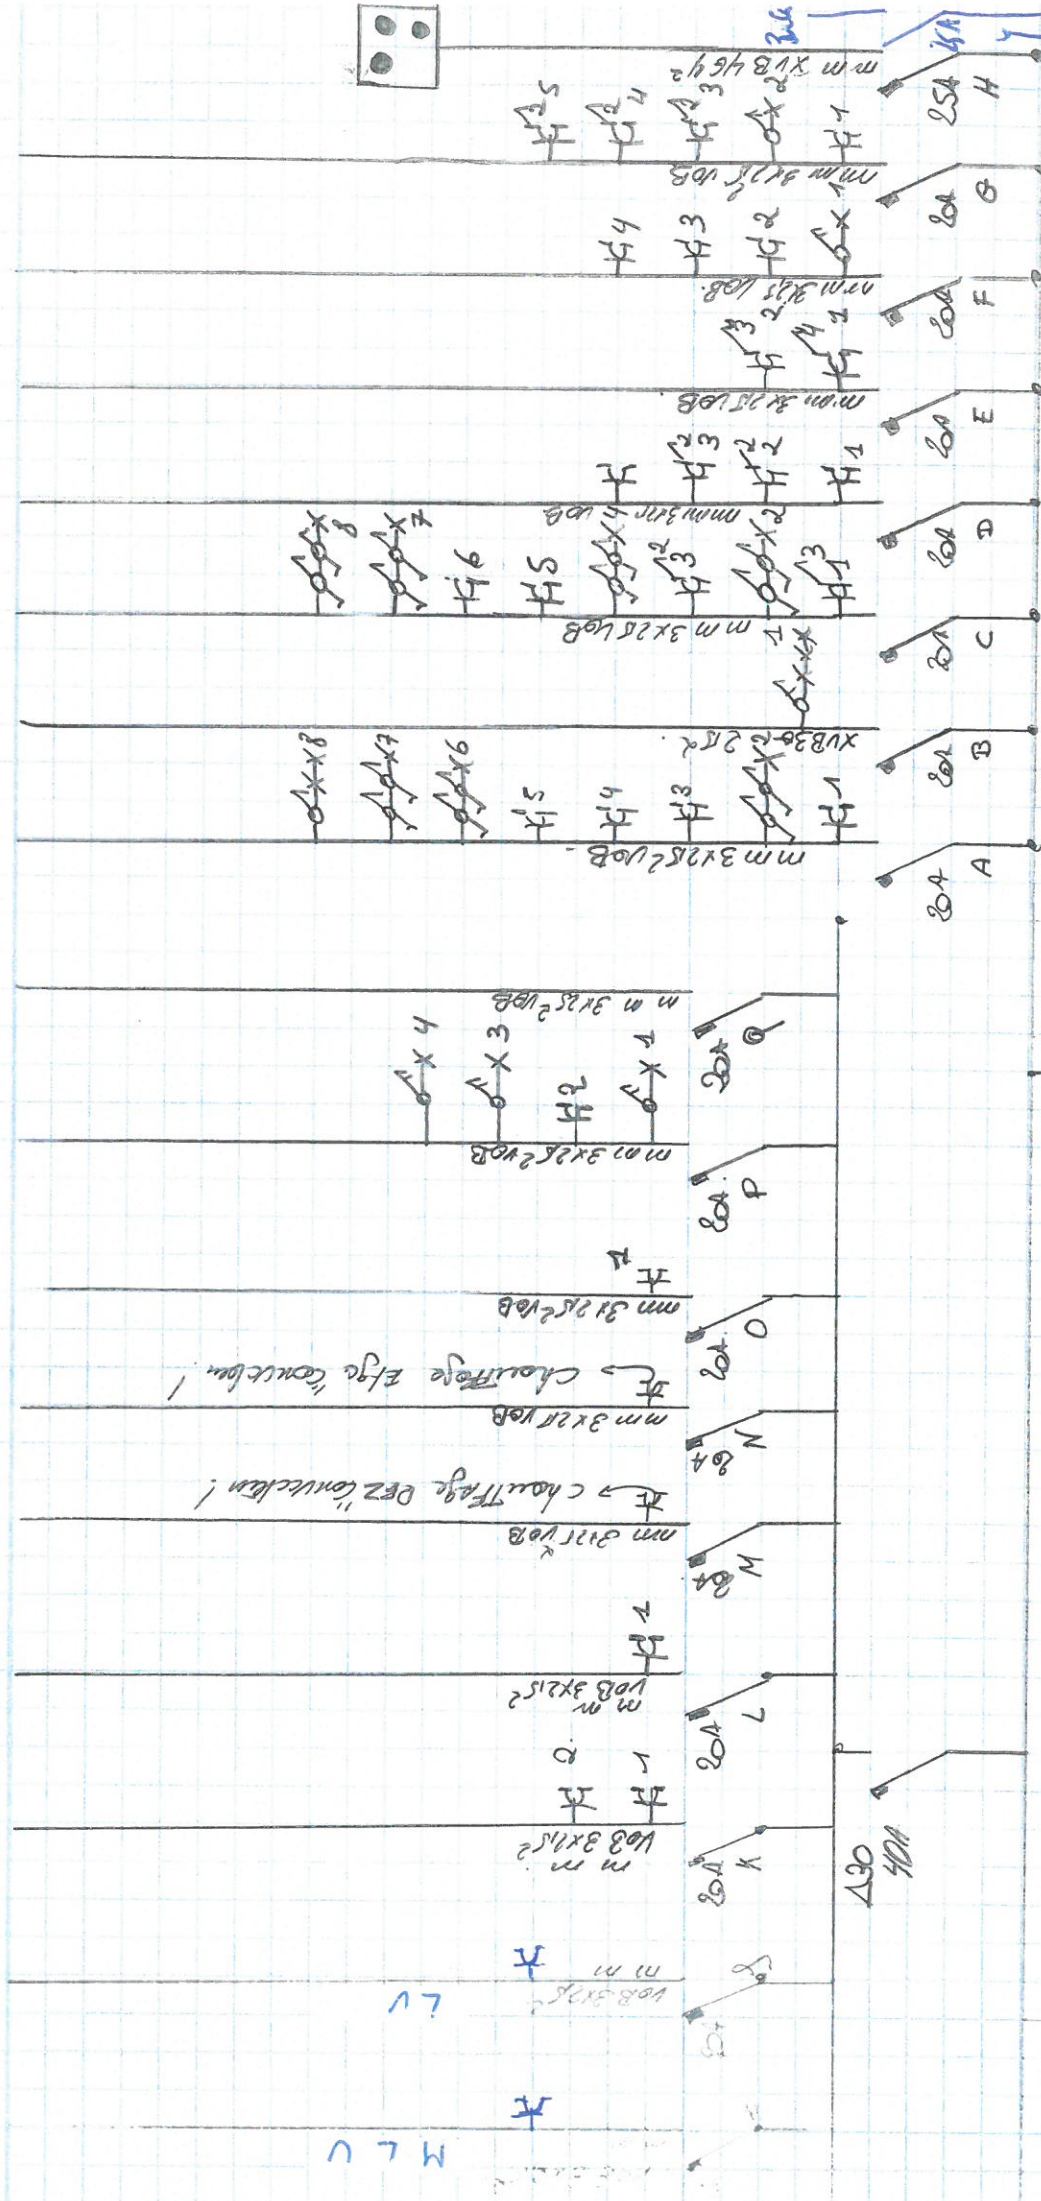 25A
H
mm XVB 4G4²
1
2
3
2
4
2
5
20A
G
mm 3x2,5² VOB
1
2
3
4
20A
F
mm 3x2,5 VOB
1
4
2
3
20A
E
mm 3x2,5 VOB
1
2
2
3
2
20A
D
mm 3x2,5 VOB
1
3
2
3
2
4
5
6
7
8
20A
C
mm 3x2,5 VOB
1
20A
B
XVB 3G 2,5²
1
2
3
4
5
6
7
8
20A
A
mm 3x2,5² VOB
20A
Q
mm 3x2,5² VOB
1
2
3
4
20A
P
mm 3x2,5² VOB
1
20A
O
mm 3x2,5² VOB
chauffage Etge
20A
N
mm 3x2,5 VOB
chauffage REZ
20A
M
mm 3x2,5² VOB
1
20A
L
mm
VOB 3x2,5²
1
2
20A
K
mm
VOB 3x2,5²
Δ30
40A
LV
mm
VOB 3x2,5²
MLV